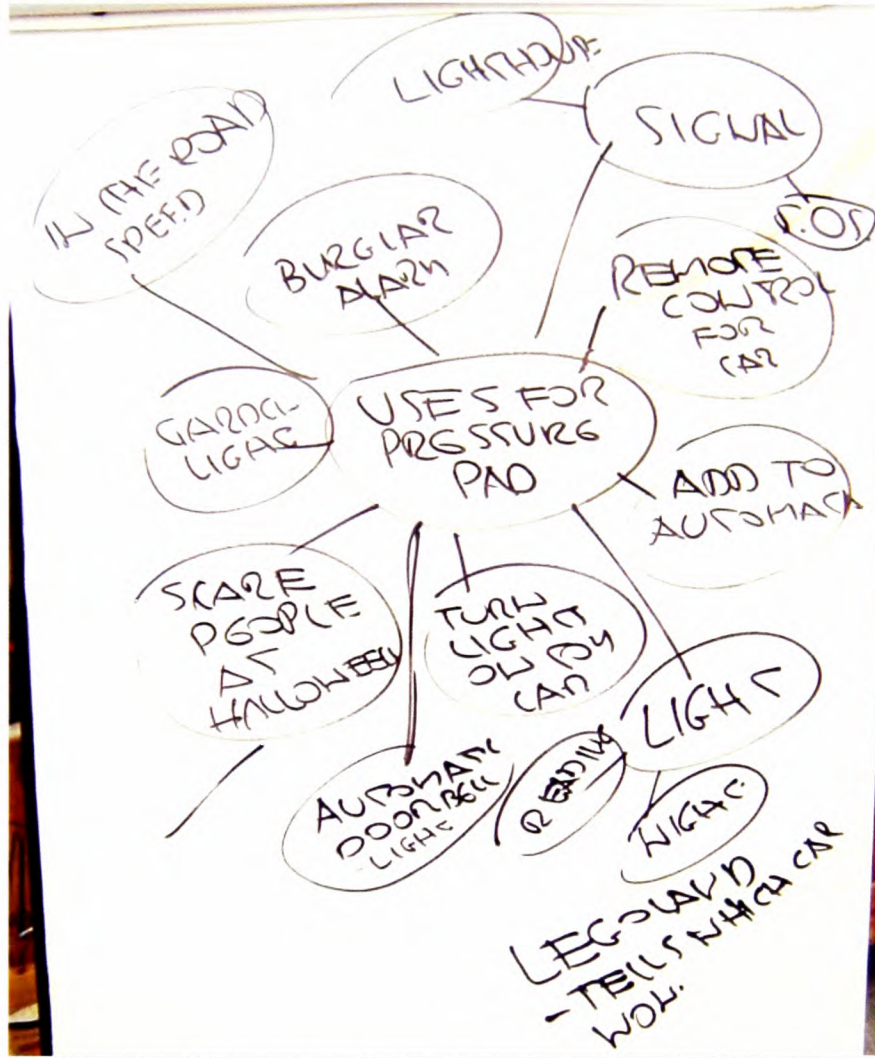 LIGHTHOUSE
SIGNAL
S.OS
IN THE ROAD
SPEED
BURGLAR
ALARM
REMOTE
CONTROL
FOR
CAR
GARDEN
LIGHT
USES FOR
PRESSURE
PAD
ADD TO
SCARE
PEOPLE
AT
HALLOWEEN
TURN
LIGHT
ON BY
CAR
LIGHT
READING
NIGHT
AUTOMATIC
DOORBELL
-LIGHT
LEGOLAND
- TELLS WHICH CAR
WON.